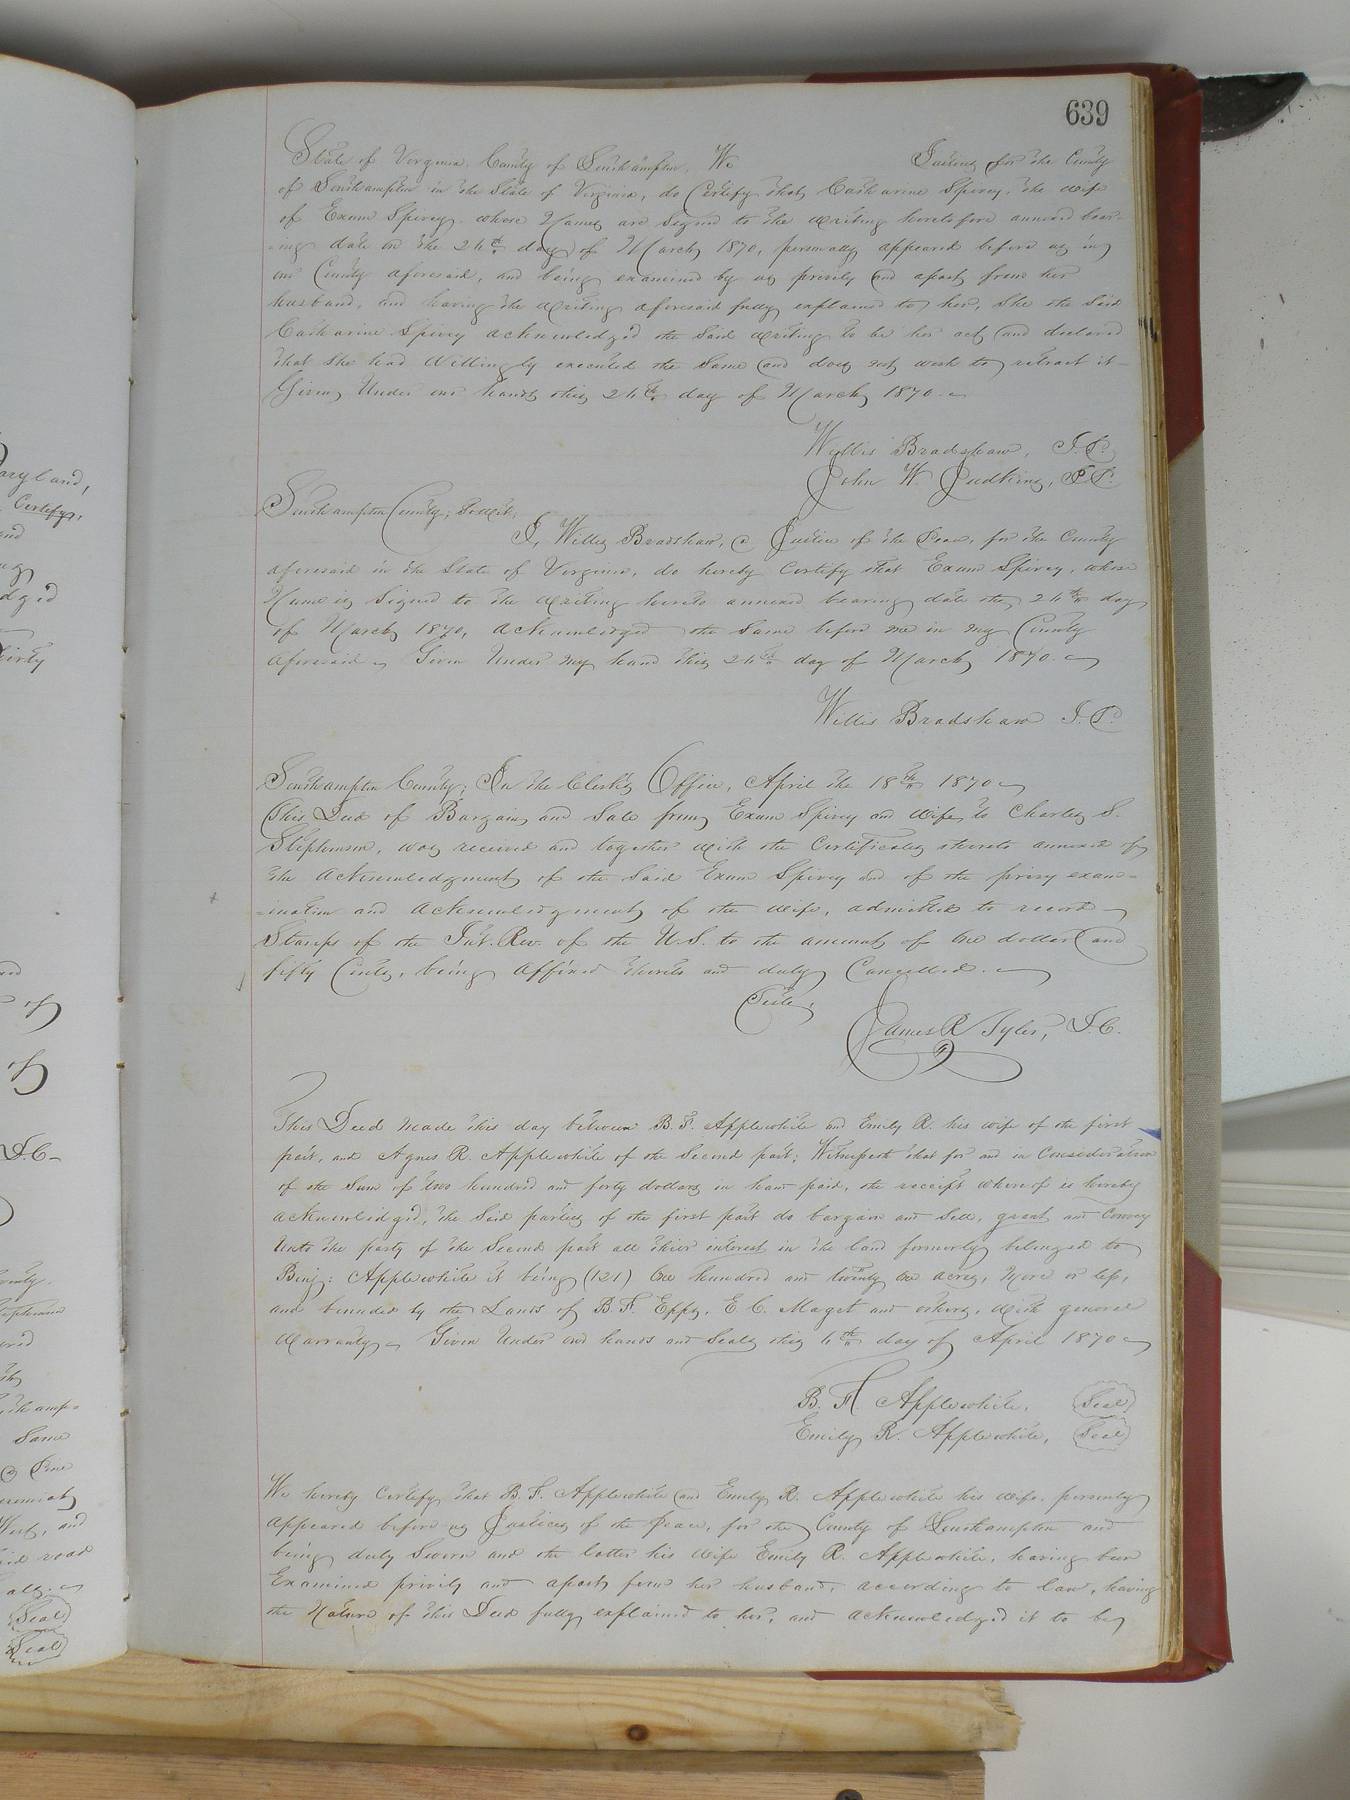 639
State of Virginia, County of Southampton, We Justices for the County
of Southampton in the State of Virginia, do Certify that Catharine Spivey, the wife
of Exum Spivey whose Names are signed to the writing heretofore annexed bear-
-ing date on the 24th day of March 1870, personally appeared before us in
our County aforesaid, and being examined by us privily and apart from her
husband, and having the writing aforesaid fully explained to her, She the Said
Catharine Spivey acknowledged the Said writing to be her act and declared
that She had Willingly executed the Same and does not wish to retract it -
Given Under our hands this 24th day of March 1870.
Willis Bradshaw, J.P.
John W. Judkins, J.P.
Southampton County, Towit,
I, Willis Bradshaw, a Justice of the Peace, for the County
aforesaid in the State of Virginia, do hereby Certify that Exum Spivey, whose
Name is Signed to the writing hereto annexed bearing date the 24th day
of March 1870, acknowledged the Same before me in my County
aforesaid Given Under my hand this 24th day of March 1870.
Willis Bradshaw J.P.
Southampton County; In the Clerk's Office, April the 18th 1870
This Deed of Bargain and Sale from Exum Spivey and wife to Charles S.
Stephenson, was received and together with the Certificates thereto annexed of
the acknowledgment of the Said Exum Spivey and of the privy exam=
=ination and acknowledgment of the wife, admitted to record
Stamps of the Int. Rev. of the U.S. to the amount of One dollar and
fifty Cents, being Affixed thereto and duly Cancelled.
Teste,
James R Tyler, D.C.
This Deed made this day between B. F. Applewhite and Emily R. his wife of the first
part, and Agnes R. Applewhite of the Second part; Witnesseth that for and in Consideration
of the Sum of two hundred and forty dollars in hand paid, the receipt whereof is hereby
acknowledged, the Said parties of the first part do bargain and Sell, grant and Convey
Unto the party of the Second part all their interest in the land formerly belonged to
Benj: Applewhite it being (121) One hundred and twenty One acres, More or less,
and bounded by the Lands of B. F. Epps, E. C. Maget and others, with general
Warranty Given Under our hands and Seals this 4th day of April 1870
B. F. Applewhite, Seal
Emily R. Applewhite, Seal
We hereby Certify that B. F. Applewhite and Emily R. Applewhite his wife, personly
Appeared before us Justices of the Peace, for the County of Southampton and
being duly Sworn and the latter his wife Emily R. Applewhite, having been
Examined privily and apart from her husband, according to law, having
the Nature of this Deed fully explained to her, and acknowledged it to be
aryland,
Certify,
D.C-
Same
West, and
Seal
Seal